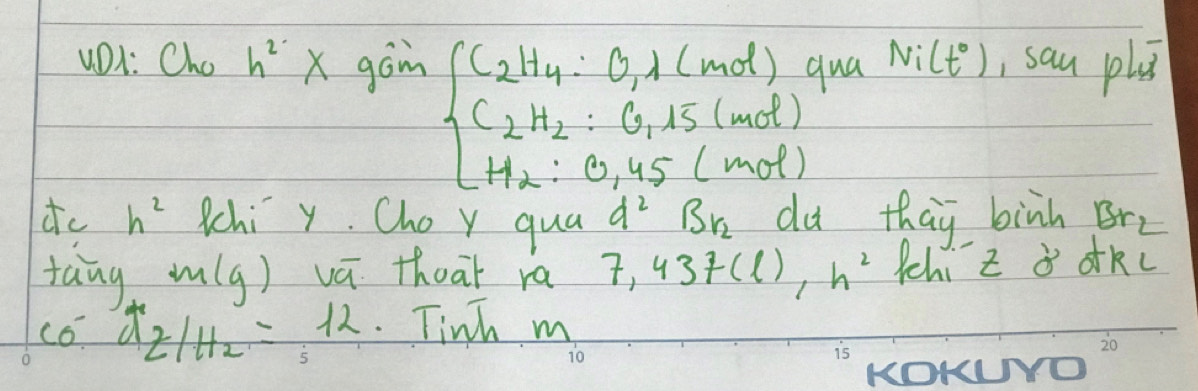 VD1: Cho h² X gồm { C₂H₄: 0,1 (mol) qua Ni(t°), sau phứ
C₂H₂: 0,15 (mol)
H₂: 0,45 (mol)
đc h² khí Y. Cho Y qua d² Br₂ dư thấy bình Br₂
tăng m(g) và thoát ra 7,437(l), h² khí Z ở đkc
có d Z/H₂ = 12. Tính m
0 5 10 15 20
KOKUYO